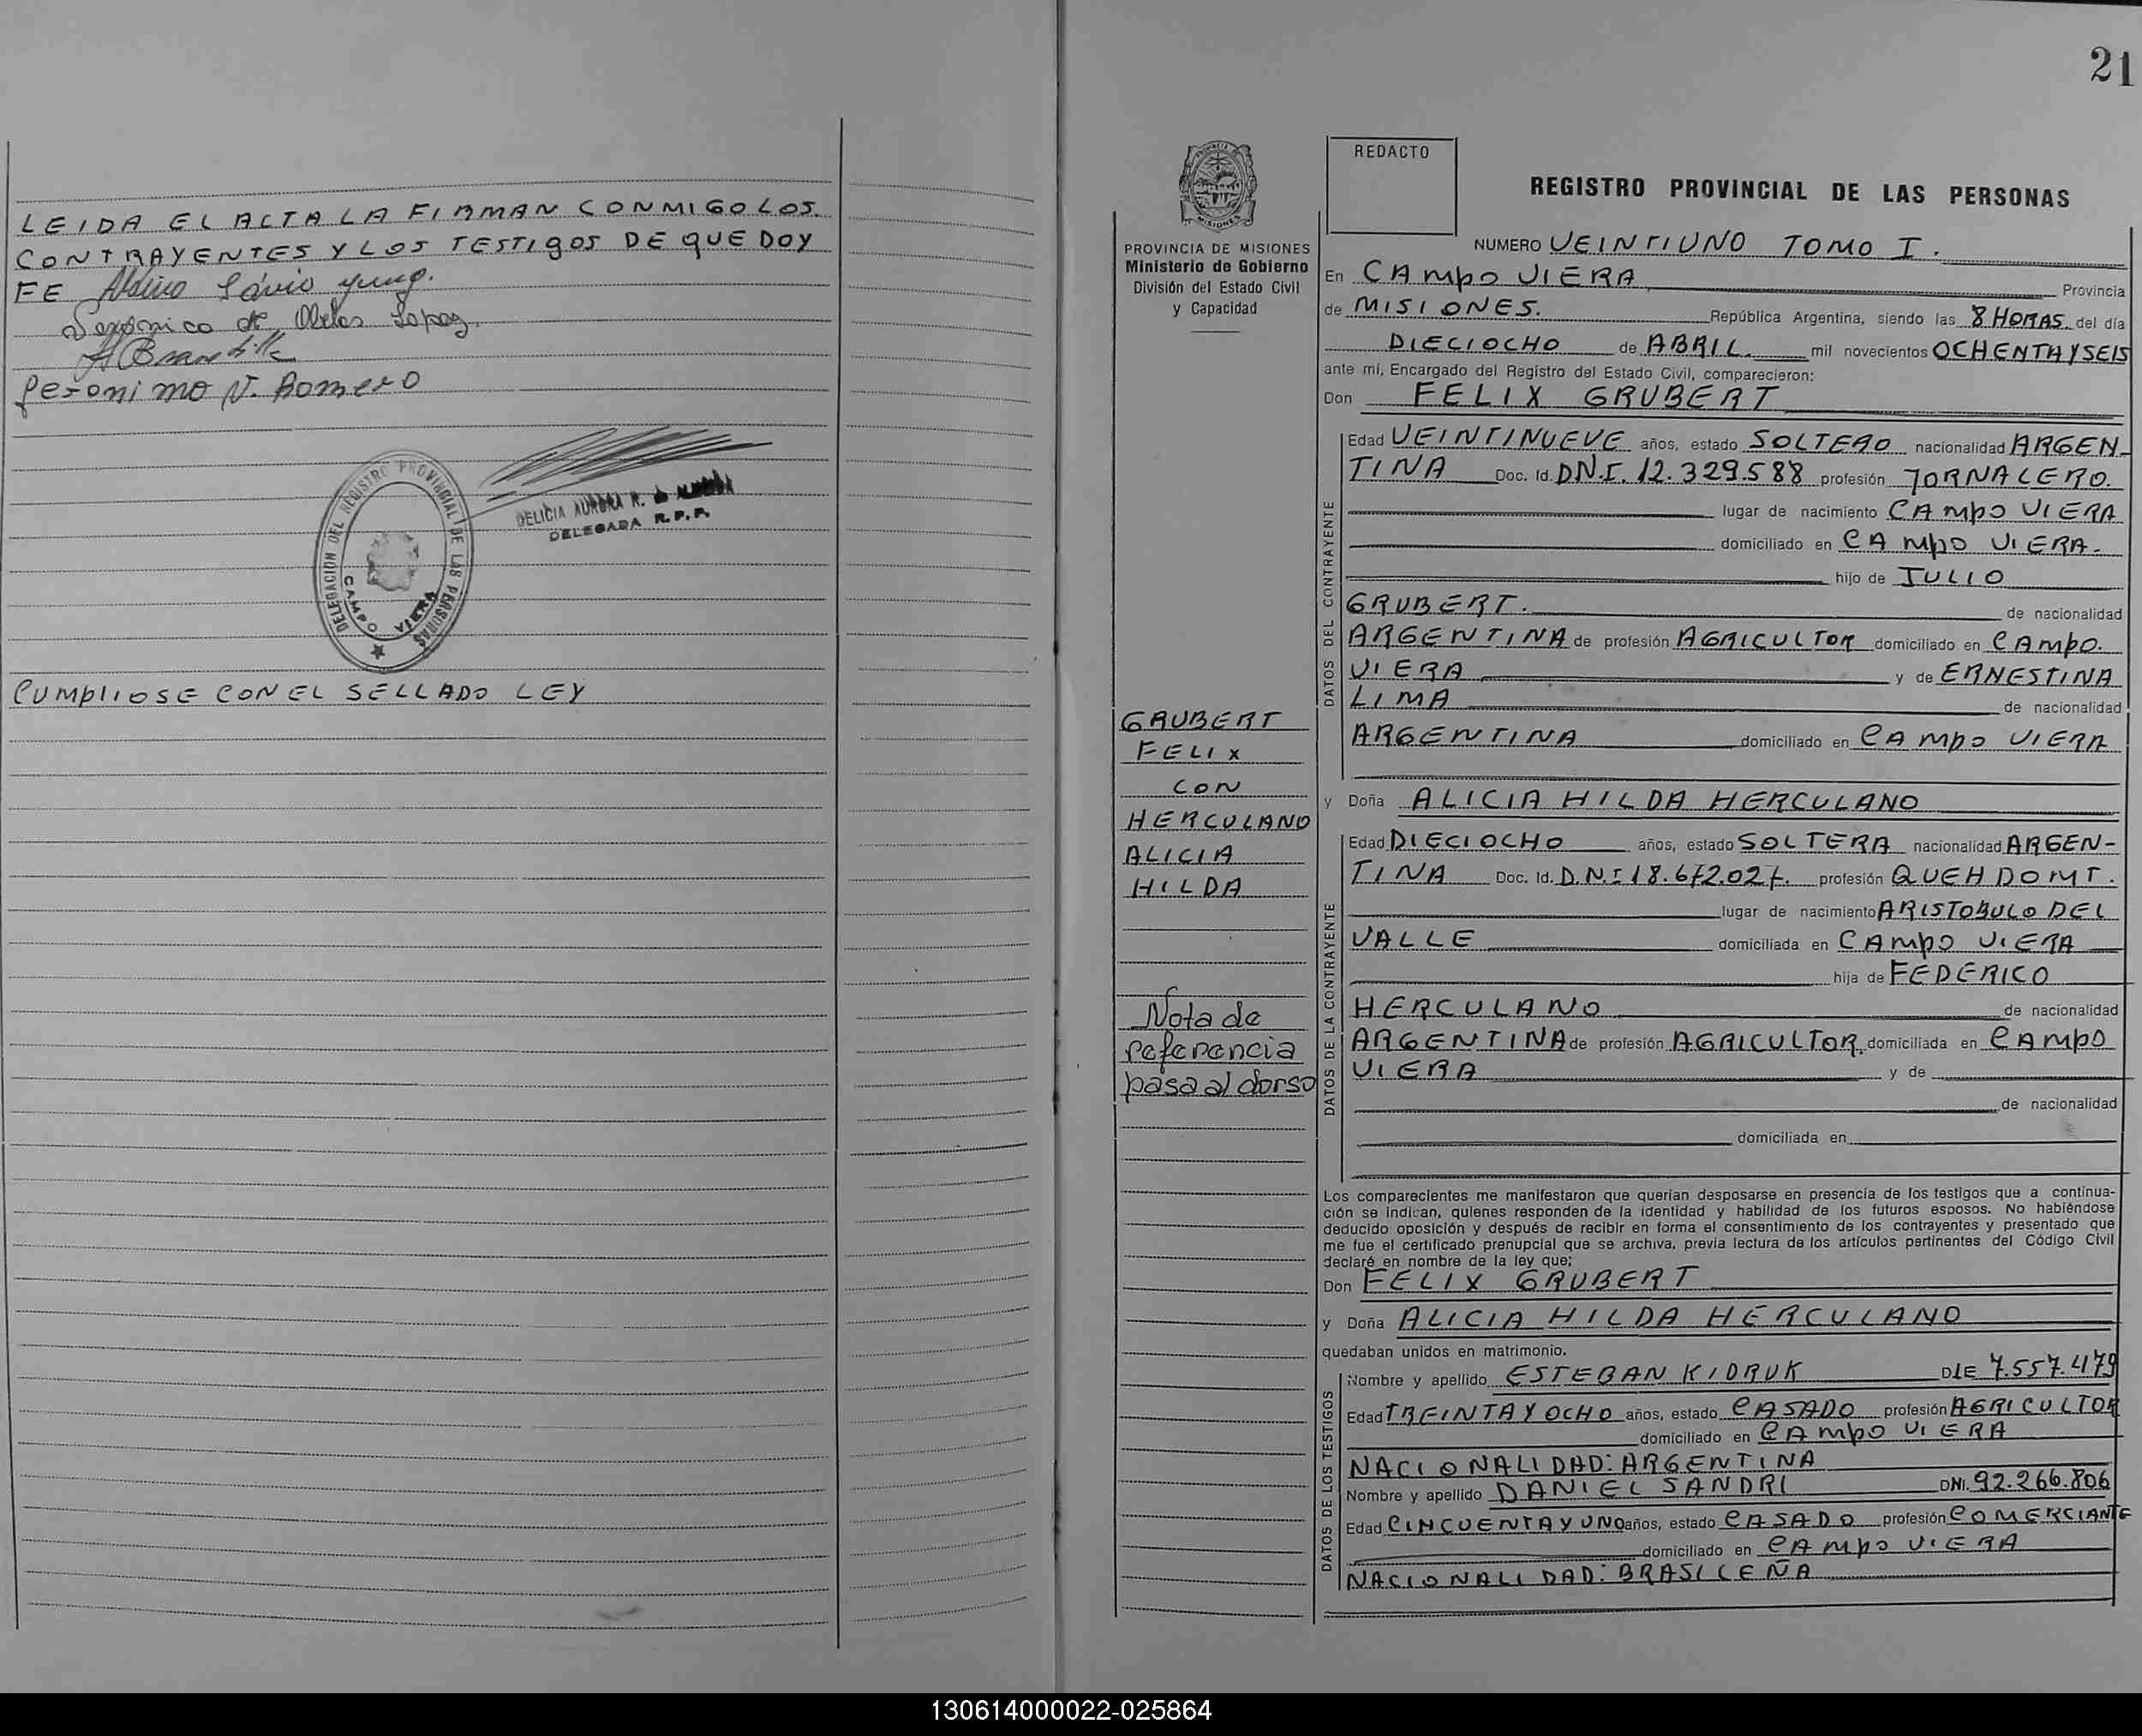 LEIDA EL ACTA LA FIRMAN CONMIGO LOS
CONTRAYENTES Y LOS TESTIGOS DE QUE DOY
FE
Geronimo V. Romero
DELEGACION DEL REGISTRO PROVINCIAL DE LAS PERSONAS
CAMPO VIERA
DELICIA AURORA R.
DELEGADA R.P.P.
CUMPLIOSE CON EL SELLADO LEY
21
PROVINCIA DE MISIONES
Ministerio de Gobierno
División del Estado Civil
y Capacidad
GRUBERT
FELIX
CON
HERCULANO
ALICIA
HILDA
Nota de
referencia
pasa al dorso
REDACTO
REGISTRO PROVINCIAL DE LAS PERSONAS
NUMERO VEINTIUNO TOMO I.
En CAMPO VIERA Provincia
de MISIONES. República Argentina, siendo las 8 HORAS del día
DIECIOCHO de ABRIL. mil novecientos OCHENTA Y SEIS
ante mí, Encargado del Registro del Estado Civil, comparecieron:
Don FELIX GRUBERT
DATOS DEL CONTRAYENTE
Edad VEINTINUEVE años, estado SOLTERO nacionalidad ARGEN-
TINA Doc. Id. DN.I. 12.329.588 profesión JORNALERO.
lugar de nacimiento CAMPO VIERA
domiciliado en CAMPO VIERA.
hijo de JULIO
GRUBERT. de nacionalidad
ARGENTINA de profesión AGRICULTOR domiciliado en CAMPO.
VIERA y de ERNESTINA
LIMA de nacionalidad
ARGENTINA domiciliado en CAMPO VIERA
y Doña ALICIA HILDA HERCULANO
DATOS DE LA CONTRAYENTE
Edad DIECIOCHO años, estado SOLTERA nacionalidad ARGEN-
TINA Doc. Id. D.N.I 18.672.027. profesión QUEH DOMT.
lugar de nacimiento ARISTOBULO DEL
VALLE domiciliada en CAMPO VIERA
hija de FEDERICO
HERCULANO de nacionalidad
ARGENTINA de profesión AGRICULTOR, domiciliada en CAMPO
VIERA y de
de nacionalidad
domiciliada en
Los comparecientes me manifestaron que querían desposarse en presencia de los testigos que a continua-
ción se indican, quienes responden de la identidad y habilidad de los futuros esposos. No habiéndose
deducido oposición y después de recibir en forma el consentimiento de los contrayentes y presentado que
me fue el certificado prenupcial que se archiva, previa lectura de los artículos pertinentes del Código Civil
declaré en nombre de la ley que;
Don FELIX GRUBERT
y Doña ALICIA HILDA HERCULANO
quedaban unidos en matrimonio.
DATOS DE LOS TESTIGOS
Nombre y apellido ESTEBAN KIDRUK DIE 7.557.479
Edad TREINTA Y OCHO años, estado CASADO profesión AGRICULTOR
domiciliado en CAMPO VIERA
NACIONALIDAD: ARGENTINA
Nombre y apellido DANIEL SANDRI DNI. 92.266.806
Edad CINCUENTA Y UNO años, estado CASADO profesión COMERCIANTE
domiciliado en CAMPO VIERA
NACIONALIDAD: BRASILEÑA
130614000022-025864